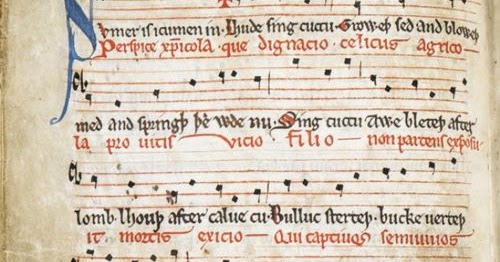 Svmer is icumen in. Lhude sing cuccu. Groweþ sed and bloweþ
Perspice xp̄icola. que dignacio. celicus agrico
med and springþ þe wde nu. Sing cuccu. Awe bleteþ after
la pro uitis vicio. filio non parcens exposu
lomb. lhouþ after calue cu. Bulluc sterteþ. bucke uerteþ
it mortis exicio. Qui captiuos semiuiuos